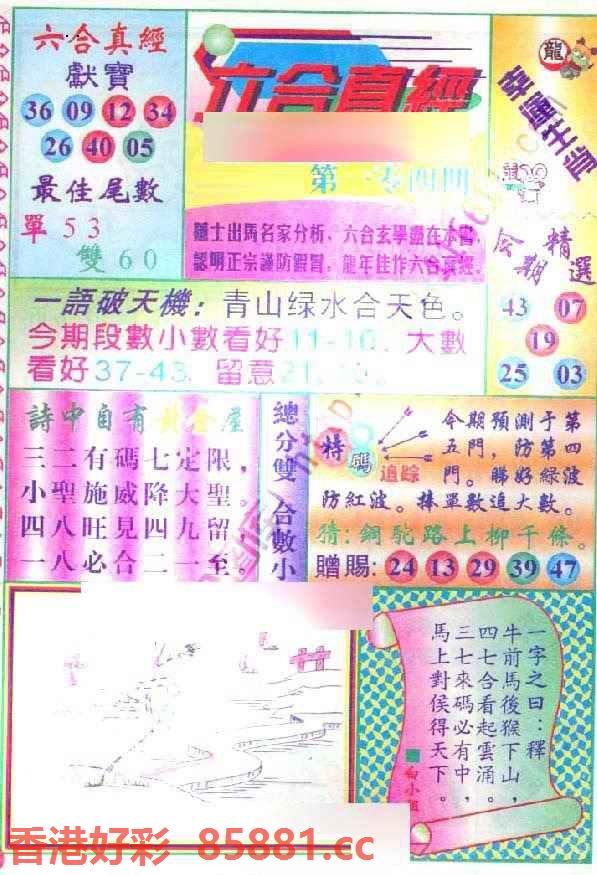 六合真經
獻寶
36 09 12 34
26 40 05
最佳尾數
單 5 3
雙 6 0
六合真經
第一零四期
龍
幸運生肖
道士出馬名家分析、六合玄學盡在本書、
認明正宗謹防假冒、龍年佳作六合真經。
今期
精選
43 07
19
25 03
一語破天機：青山绿水合天色。
今期段數小數看好11-16、大數
看好37-43、留意
詩中自有黄金屋
三二有碼七定限，
小聖施威降大聖。
四八旺見四九留，
一八必合二一至。
總分雙 合數小
特碼
追踪
今期預測于第
五門，防第四
門。睇好綠波
防紅波。捧單數追大數。
猜：銅駝路上柳千條。
贈賜：24 13 29 39 47
一字之曰：釋
牛前馬後猴下山，
四七合看起雲涌。
三七來碼必有中，
馬上對侯得天下。
香港好彩 85881.cc